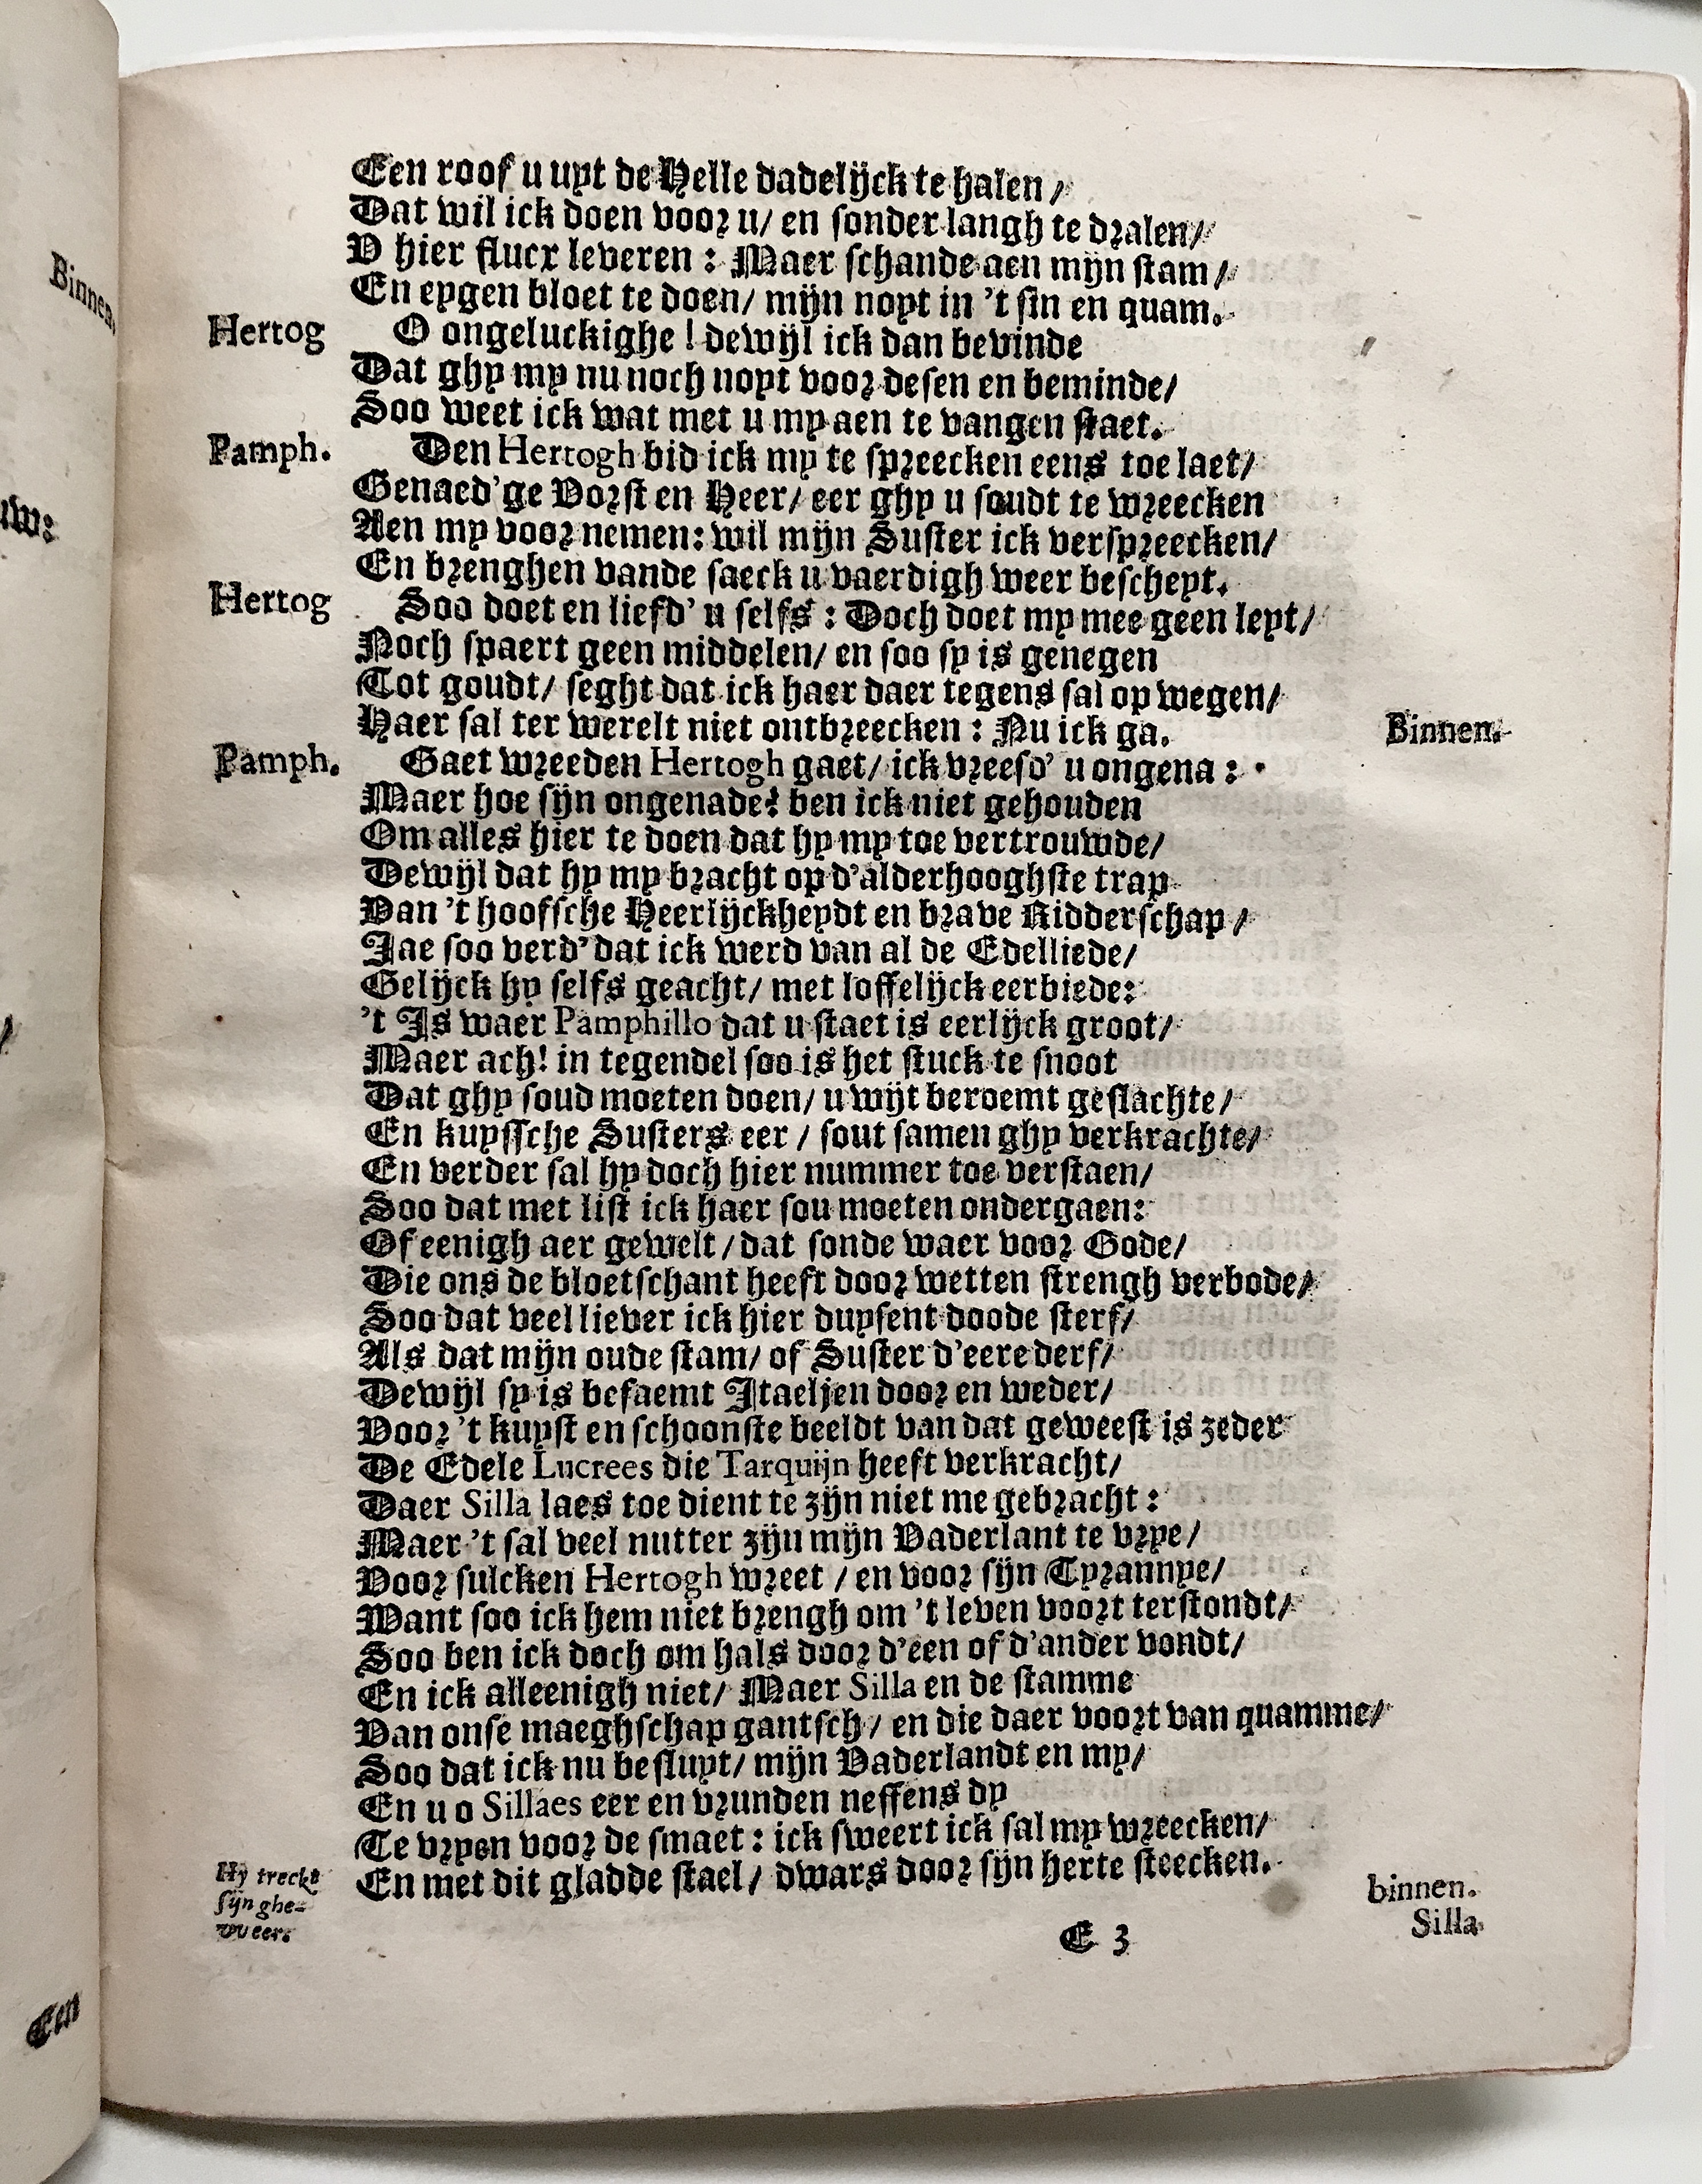 Een roof u uyt de Helle dadelijck te halen /
Dat wil ick doen voor u / en sonder langh te dralen /
V hier flucx leveren : Maer schande aen mijn stam /
En eygen bloet te doen / mijn noyt in 't sin en quam.
Hertog O ongeluckighe ! dewijl ick dan bevinde
Dat ghy my nu noch noyt voor desen en beminde /
Soo weet ick wat met u my aen te vangen staet.
Pamph. Den Hertogh bid ick my te spreecken eens toe laet /
Genaed'ge Vorst en Heer / eer ghy u soudt te wreecken
Aen my voor nemen : wil mijn Suster ick verspreecken /
En brenghen vande saeck u vaerdigh weer bescheyt.
Hertog Soo doet en liefd' u selfs : Doch doet my mee geen leyt /
Noch spaert geen middelen / en soo sy is genegen
Tot goudt / seght dat ick haer daer tegens sal op wegen /
Haer sal ter werelt niet ontbreecken : Nu ick ga. Binnen.
Pamph. Gaet wreeden Hertogh gaet / ick vreesd' u ongena :
Maer hoe sijn ongenade? ben ick niet gehouden
Om alles hier te doen dat hy my toe vertrouwde /
Dewijl dat hy my bracht op d'alderhooghste trap
Van 't hoofsche Heerlijckheydt en brave Ridderschap /
Jae soo verd' dat ick werd van al de Edelliede /
Gelijck hy selfs geacht / met loffelijck eerbiede :
't Is waer Pamphillo dat u staet is eerlijck groot /
Maer ach! in tegendel soo is het stuck te snoot
Dat ghy soud moeten doen / u wijt beroemt geslachte /
En kuyssche Susters eer / sout samen ghy verkrachte /
En verder sal hy doch hier nummer toe verstaen /
Soo dat met list ick haer sou moeten ondergaen :
Of eenigh aer gewelt / dat sonde waer voor Gode /
Die ons de bloetschant heeft door wetten strengh verbode /
Soo dat veel liever ick hier duysent doode sterf /
Als dat mijn oude stam / of Suster d'eere derf /
Dewijl sy is befaemt Itaeljen door en weder /
Voor 't kuyst en schoonste beeldt van dat geweest is zeder
De Edele Lucrees die Tarquijn heeft verkracht /
Daer Silla laes toe dient te zijn niet me gebracht :
Maer 't sal veel nutter zijn mijn Vaderlant te vrye /
Voor sulcken Hertogh wreet / en voor sijn Tyrannye /
Want soo ick hem niet brengh om 't leven voort terstondt /
Soo ben ick doch om hals door d'een of d'ander vondt /
En ick alleenigh niet / Maer Silla en de stamme
Van onse maeghschap gantsch / en die daer voort van quamme /
Soo dat ick nu besluyt / mijn Vaderlandt en my /
En u o Sillaes eer en vrunden neffens dy
Te vryen voor de smaet : ick sweert ick sal my wreecken /
En met dit gladde stael / dwars door sijn herte steecken.
Hy treckt
sijn ghe-
weer.
binnen.
E 3
Silla
Binnen.
uw:
Een